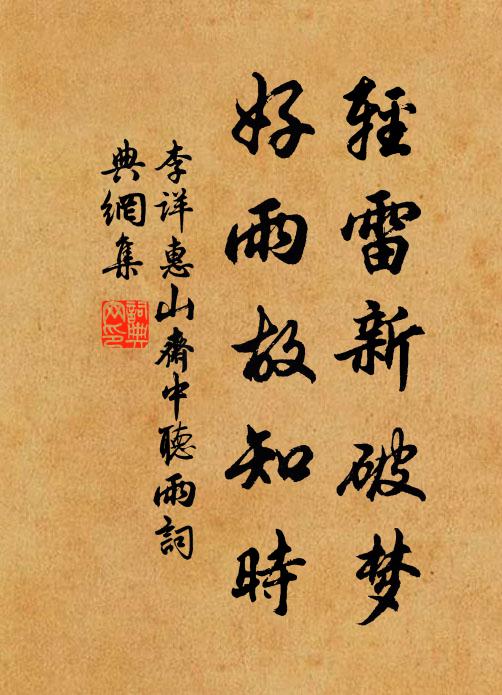 輕雷新破梦
好雨故知時
李详惠山齋中聽雨詞
典網集
詞典
网印